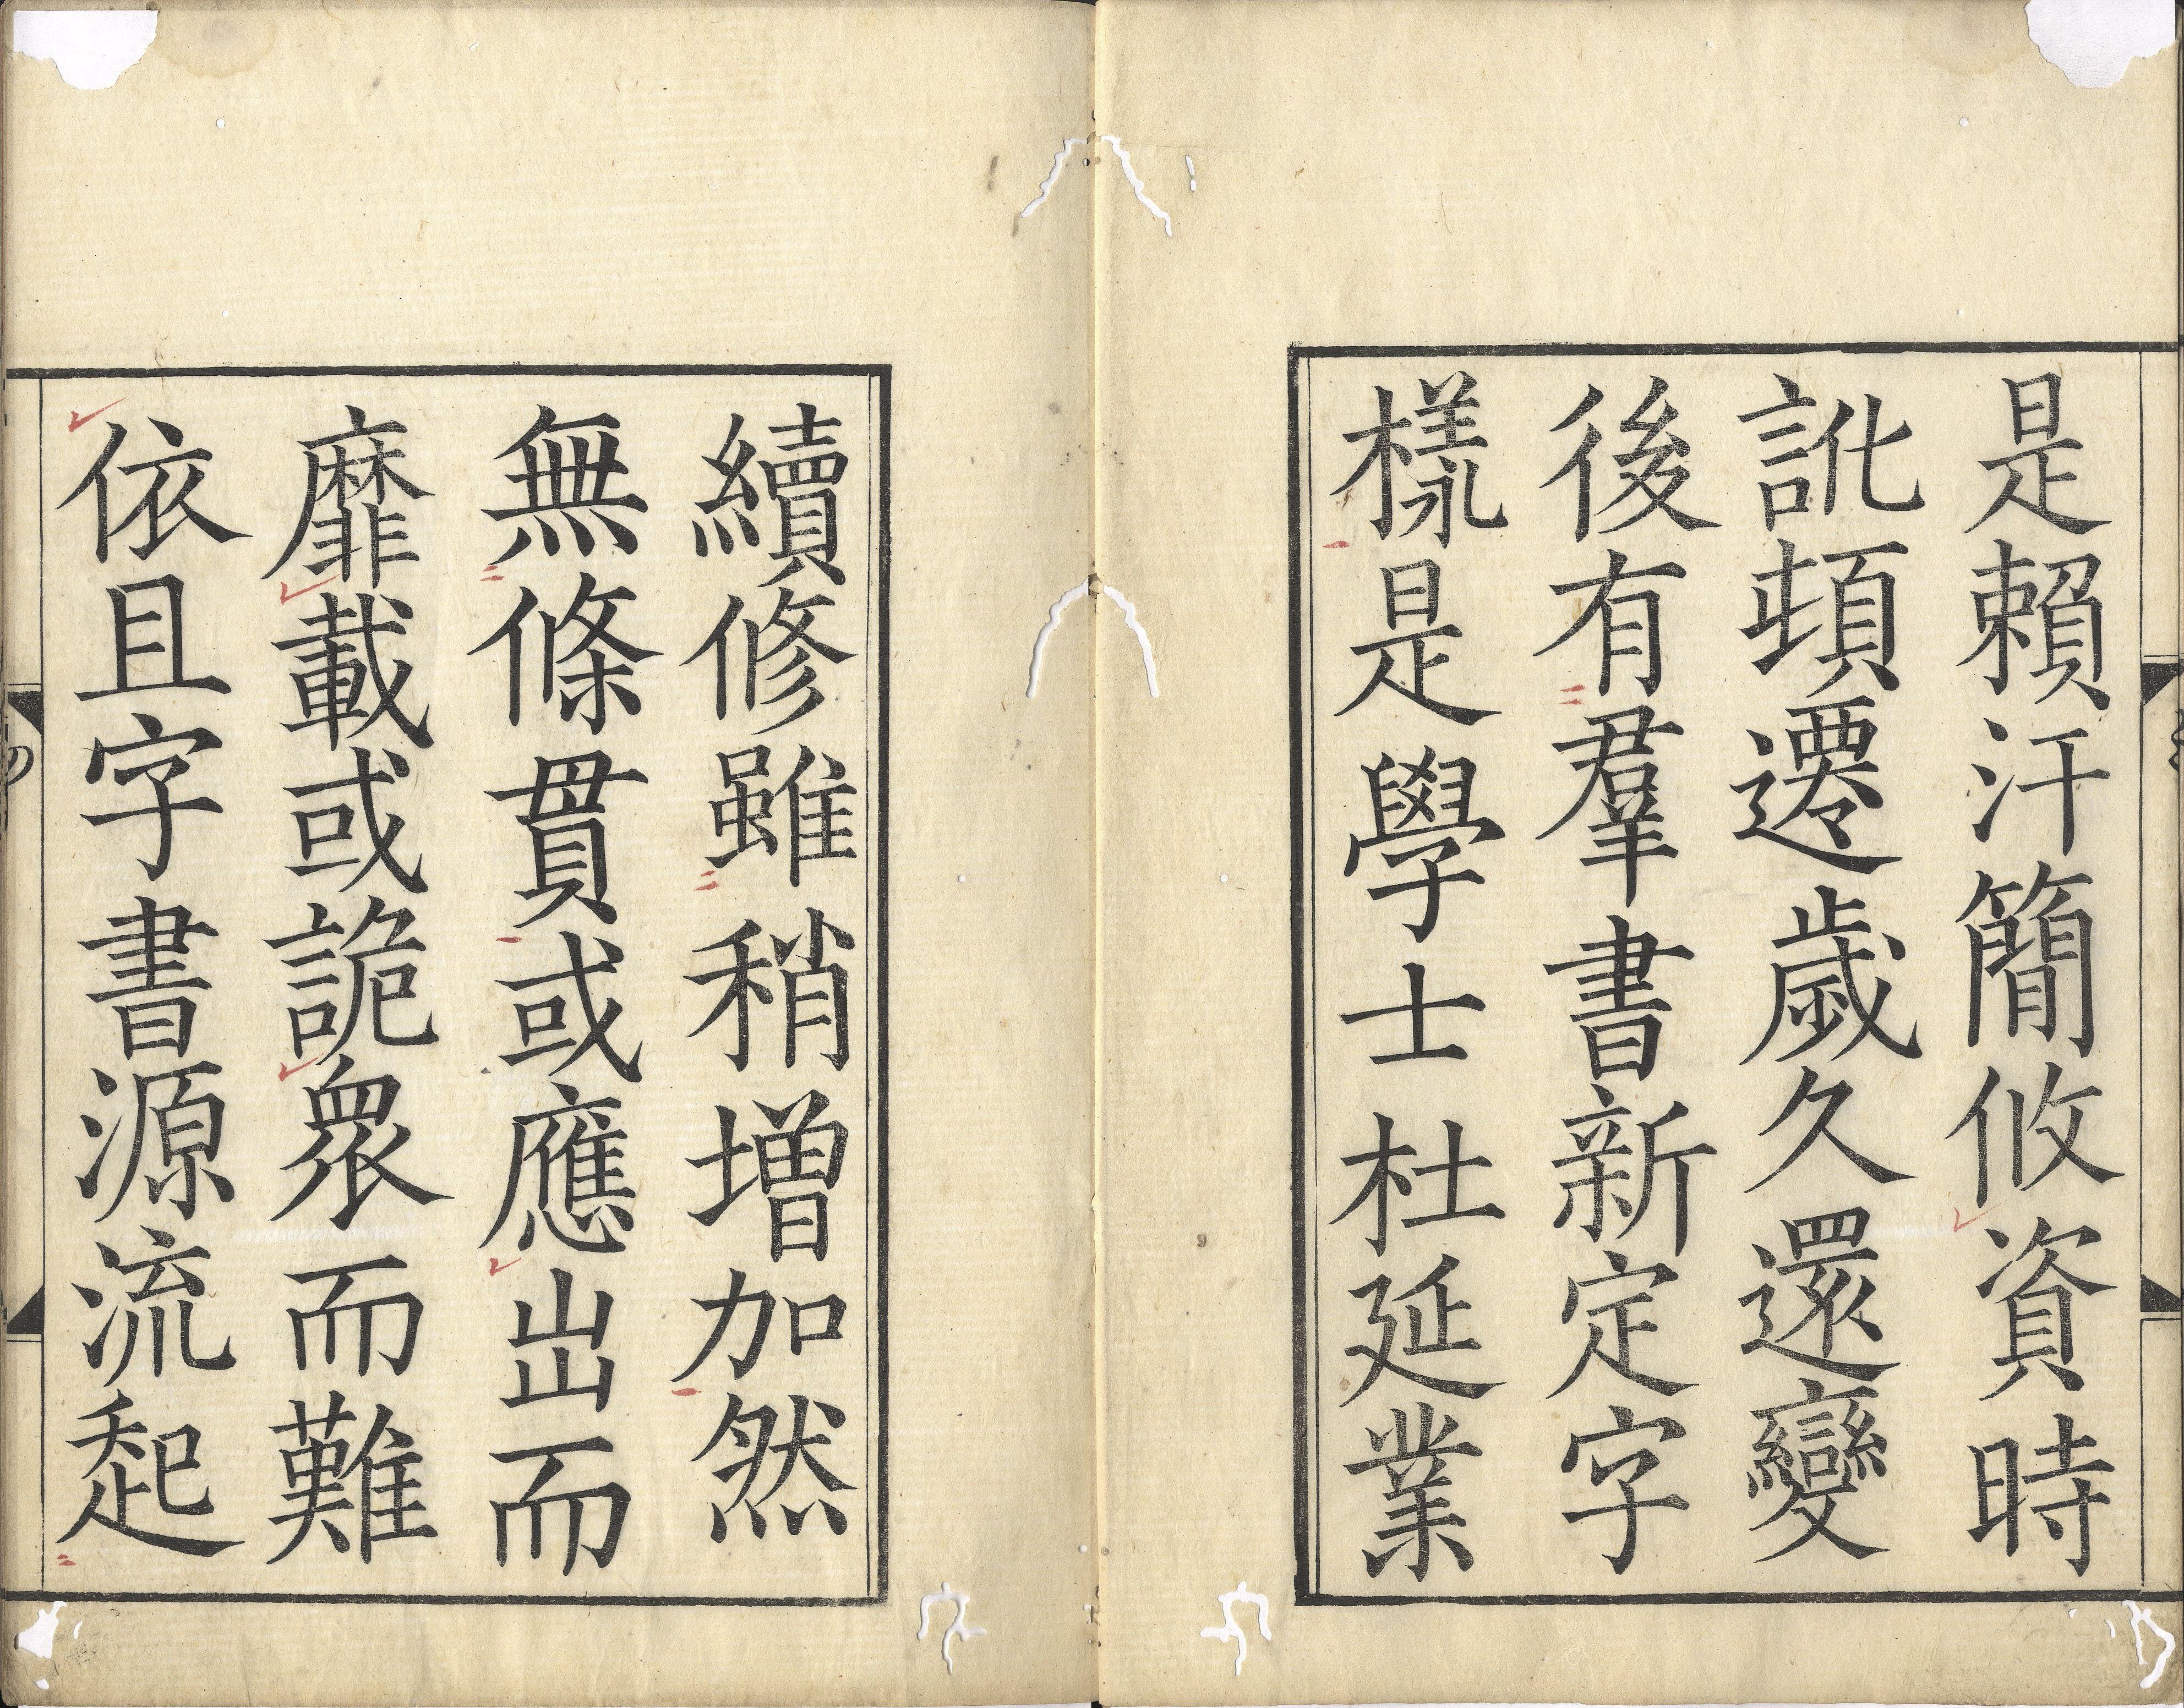 是賴汗簡攸資時
訛頓遷歲久還變
後有羣書新定字
樣是學士杜延業
續修雖稍增加然
無條貫或應出而
靡載或詭衆而難
依且字書源流起